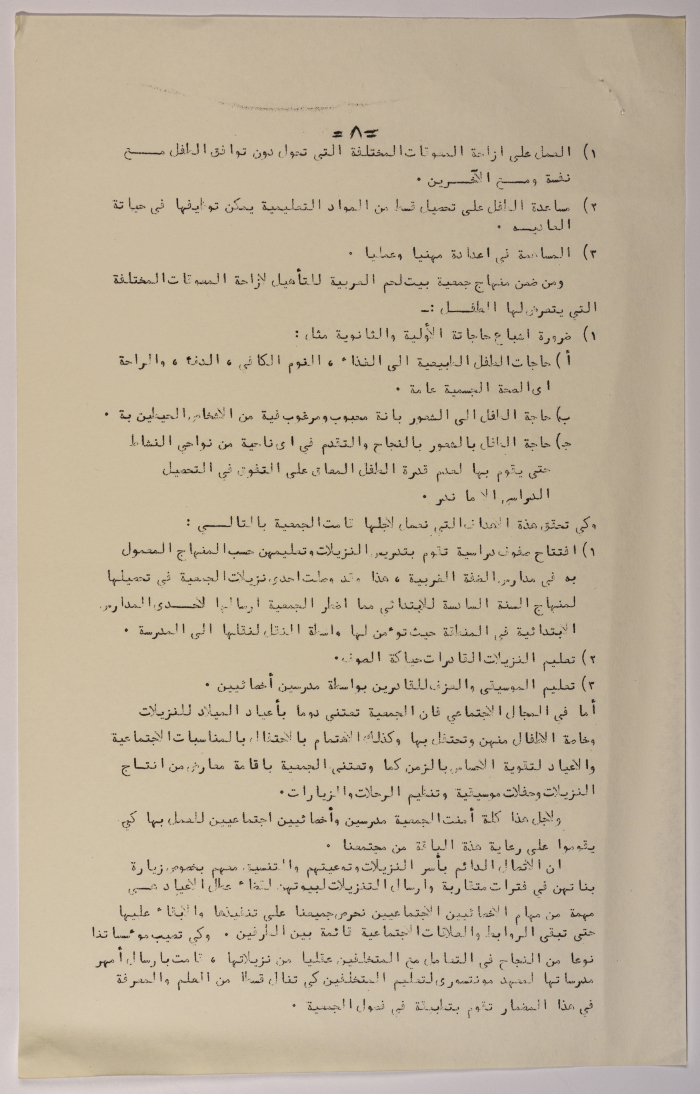 =٨=
١) العمل على ازاحة المعوقات المختلفة التي تحول دون توافق الطفل مــع
نفسة ومــع الآخـرين .
٢) مساعدة الطفل على تحصيل قسط من المواد التعليمية يمكن توظيفها في حياتة
العاديـه .
٣) المساهمة في اعدادة مهنيا وعمليا .
ومن ضمن منهاج جمعية بيت لحم العربية للتأهيل لازاحة المعوقات المختلفة
التي يتعرض لها الطفــل :ـ
١) ضرورة اشباع حاجاتة الأولية والثانوية مثل :
أ) حاجات الطفل الطبيعية الى الغذاء ، النوم الكافي ، الدفء ، والراحة
اى الصحة الجسمية عامة .
ب) حاجة الطفل الى الشعور بانة محبوب ومرغوب فية من الاشخاص المحيطين بة .
ج) حاجة الطفل بالشعور بالنجاح والتقدم في اى ناحية من نواحي النشاط
حتى يقوم بها لعدم قدرة الطفل المعاق على التفوق في التحصيل
الدراسي الا ما ندر .
وكي تحقق هذة الاهداف التي نعمل لاجلها قامت الجمعية بالتالـــي :
١) افتتاح صفوف دراسية تقوم بتدريس النزيلات وتعليمهن حسب المنهاج المعمول
به في مدارس الضفة الغربية ، هذا وقد وصلت احدى نزيلات الجمعية في تحصيلها
لمنهاج السنة السادسة للابتدائي مما اضطر الجمعية ارسالها لاحــدى المدارس
الابتدائية في المنطقة حيث تؤمن لها واسطة النقل لنقلها الى المدرسة .
٢) تعليم النزيلات القادرات حياكة الصوف.
٣) تعليم الموسيقى والعزف للقادرين بواسطة مدرسين أخصائيين .
أما في المجال الاجتماعي فان الجمعية تعتني دوما بأعياد الميلاد للنزيلات
وخاصة الاطفال منهن وتحتفل بها وكذلك الاهتمام بالاحتفال بالمناسبات الاجتماعية
والاعياد لتقوية الاحساس بالزمن كما وتعتني الجمعية باقامة معارض من انتـاج
النزيلات وحفلات موسيقية وتنظيم الرحلات والزيارات.
ولاجل هذا كلة أمنت الجمعية مدرسين وأخصائيين اجتماعيين للعمل بها كي
يقوموا على رعاية هذة الطاقة من مجتمعنا .
ان الاتصال الدائم بأسر النزيلات وتوعيتهم والتنسيق معهم بخصوص زيارة
بناتهن في فترات متقاربة وارسال النزيلات لبيوتهن لقضاء عطل الاعياد هـــي
مهمة من مهام الاخصائيين الاجتماعيين نحرص جميعنا على تنفيذها والابقاء عليها
حتى تبقى الروابط والعلاقات الاجتماعية قائمة بين الطرفين . وكي تصيب مؤسساتنا
نوعا من النجاح في التعامل مع المتخلفين عقليا من نزيلاتها ، قامت بارسال أمهر
مدرساتها لمعهد مونتسورى لتعليم المتخلفين كي تنال قسطا من العلم والمعرفة
في هذا المضمار تقوم بتطبيقة في فصول الجمعية .